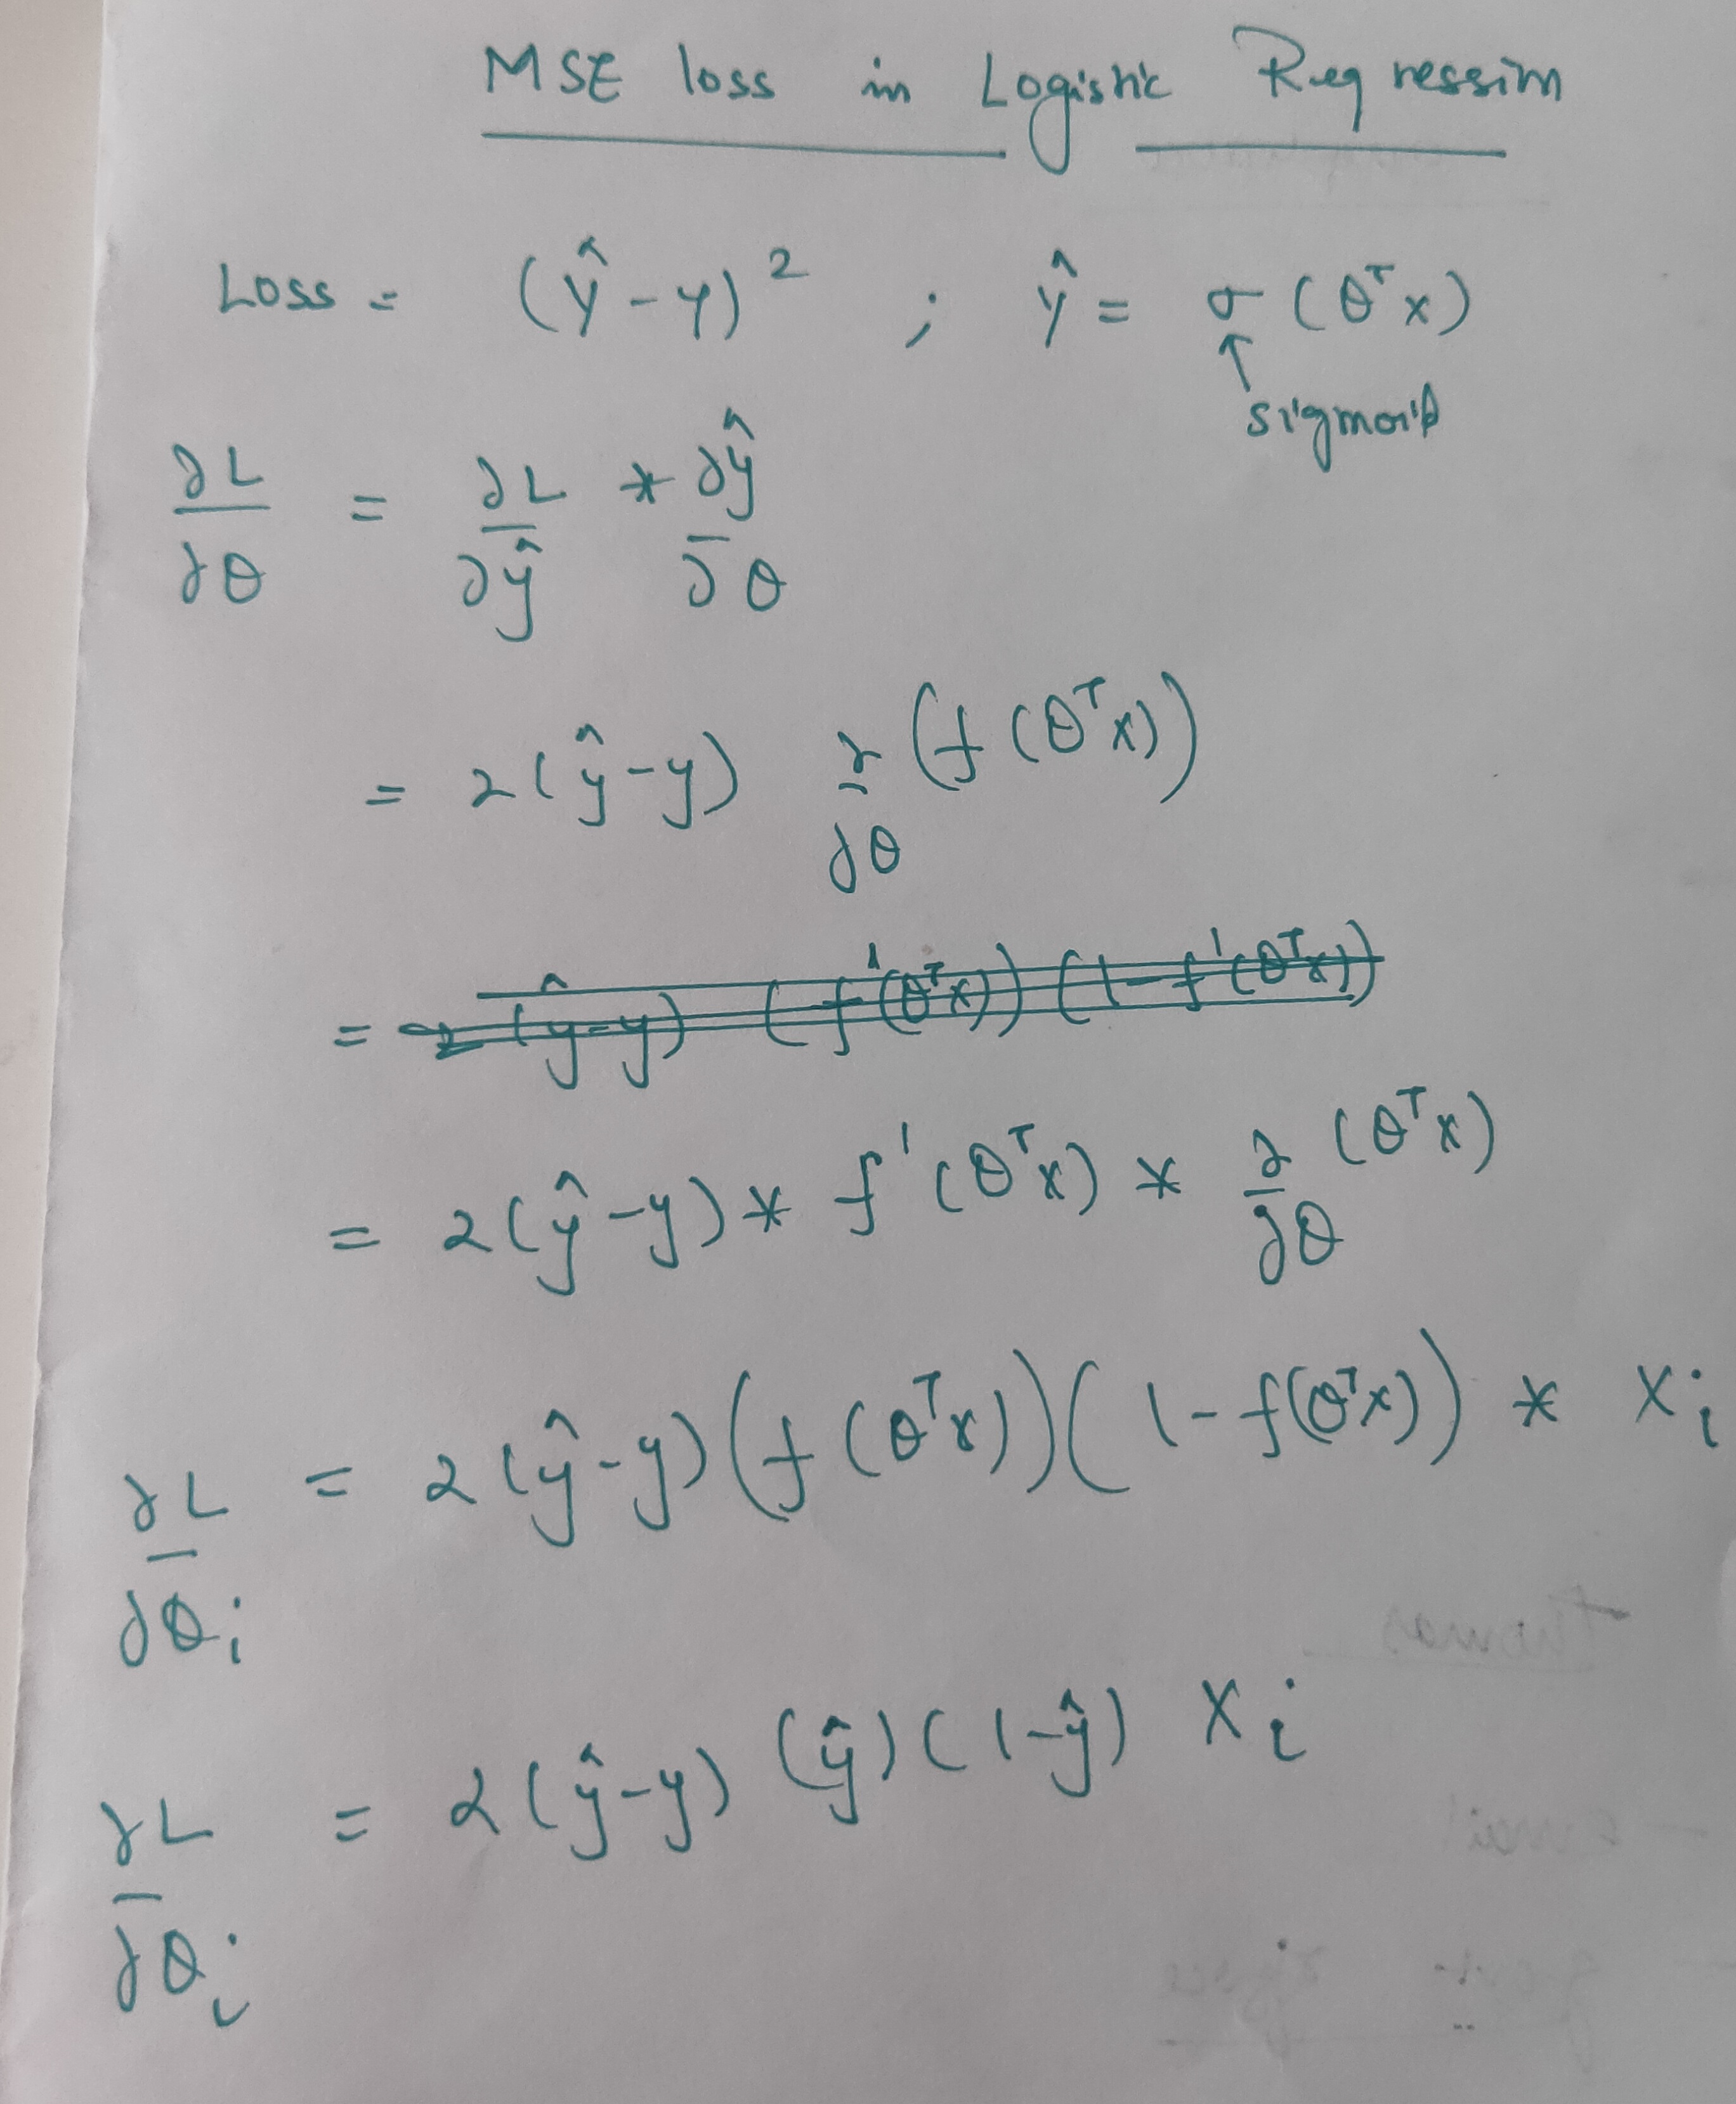 MSE loss in Logistic Regression
Loss = (ŷ - y)² ; ŷ = σ(θᵀx)
↑
sigmoid
∂L/∂θ = ∂L/∂ŷ * ∂ŷ/∂θ
= 2(ŷ-y) ∂/∂θ (f(θᵀx))
= 2(ŷ-y) (f'(θᵀx)) (1-f'(θᵀx))
= 2(ŷ-y) * f'(θᵀx) * ∂/∂θ (θᵀx)
∂L/∂θi = 2(ŷ-y)(f(θᵀx))(1-f(θᵀx)) * Xi
∂L/∂θi = 2(ŷ-y)(ŷ)(1-ŷ) Xi